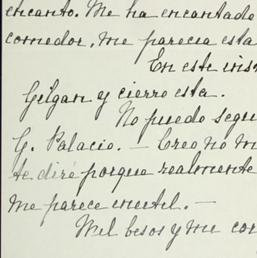 encanto. Me ha encantado
comedor, me parecia esta
En este ins
Gilgan y cierro esta.
No puedo segu
G. Palacio. — Creo no m
te diré porque realmente
me parece inutil. —
Mil besos y mi cor